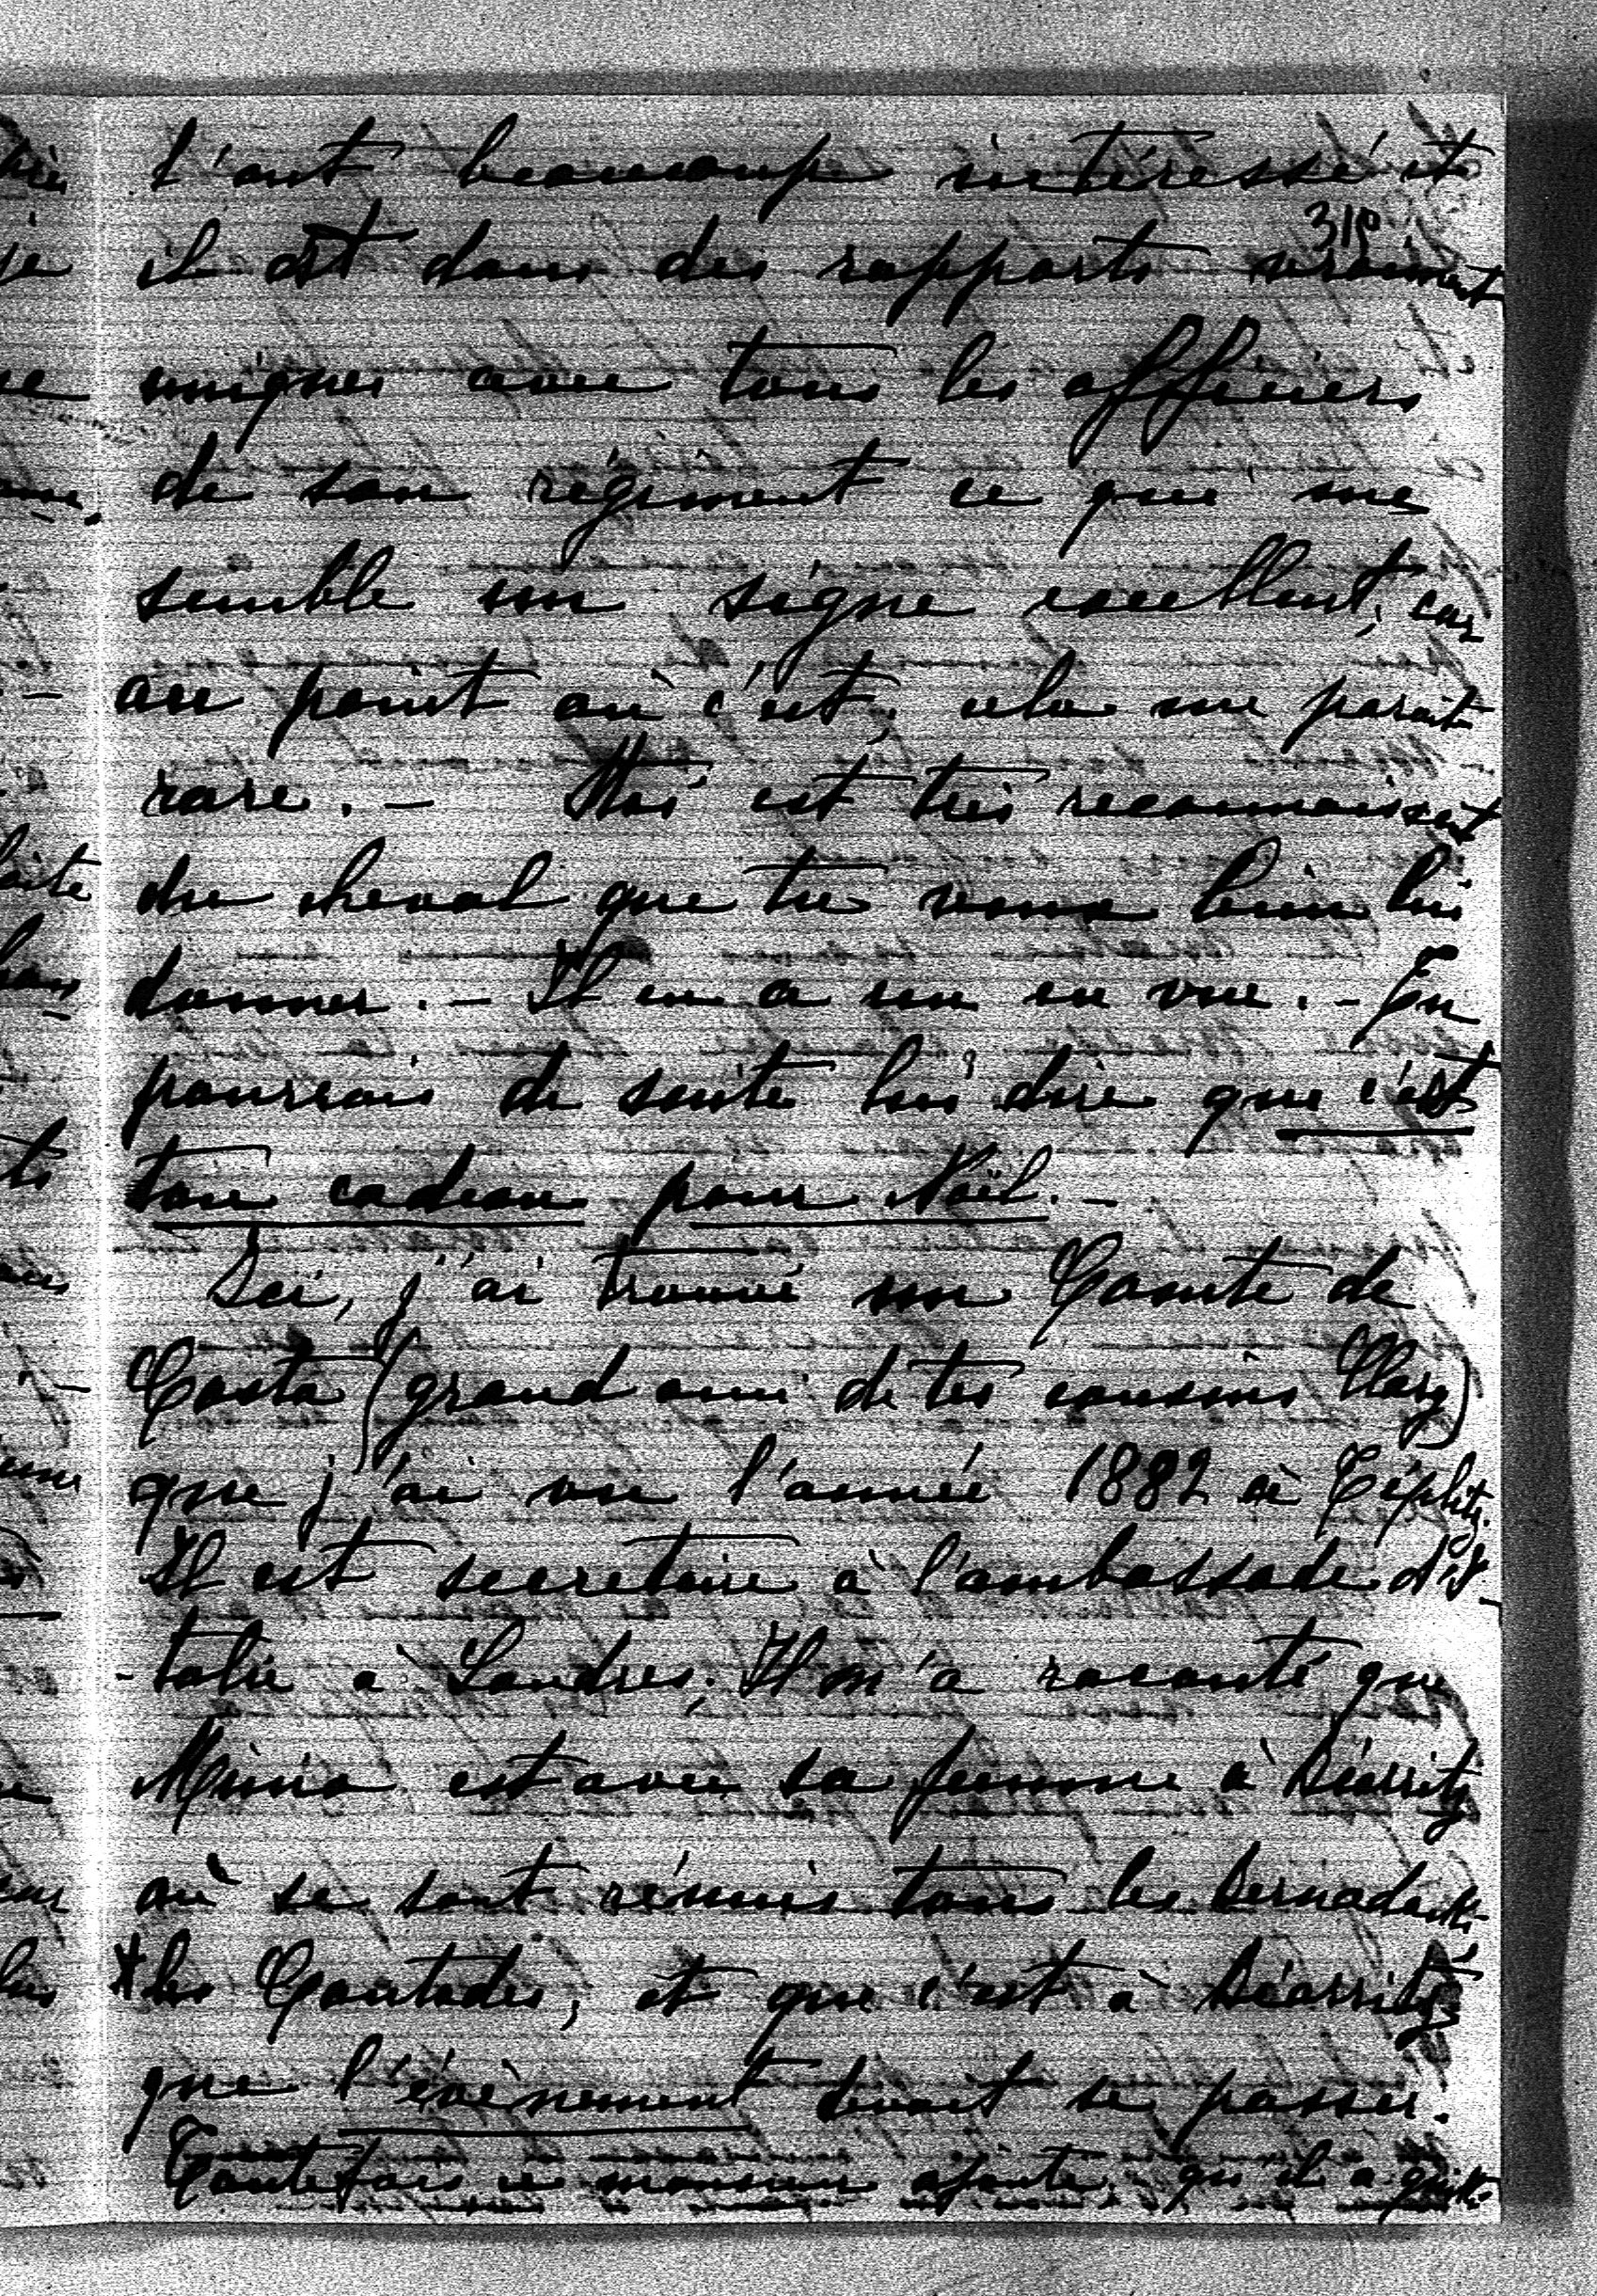 l'ont beaucoup intéressé et
318
il est dans des rapports vraiment
uniques avec tous les officiers
de son régiment ce qui me
semble un signe excellent, car
au point où c'est, cela me parait
rare. - est très reconnaissant
du cheval que tu veux bien lui
donner. - Il en a un en vue. - Tu
pourrais de suite lui dire que c'est
ton cadeau pour Noël. -
Ici, j'ai trouvé un Comte de
Costa (grand ami de tes cousins Clary)
que j'ai vu l'année 1882 à Téplitz.
Il est secretaire à l'ambassade d'I-
-talie à Londres; Il m'a raconté que
Mina est avec sa femme à Biarritz
où se sont réunis tous les
* les Contades, et que c'est à Biarritz
que l'évènement devait se passer.
Toutefois ce monsieur ajoute qu'il a quitté